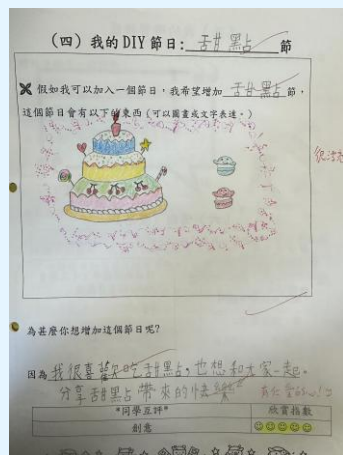 (四)我的DIY節日:甜點節
假如我可以加入一個節日,我希望增加 甜點節,
這個節日會有以下的東西(可以圖畫或文字表達。)
為甚麼你想增加這個節日呢?
因為我很喜歡吃甜點,也想和大家一起。
分享甜點帶來的快樂
*同學互評*
欣賞指數
創意